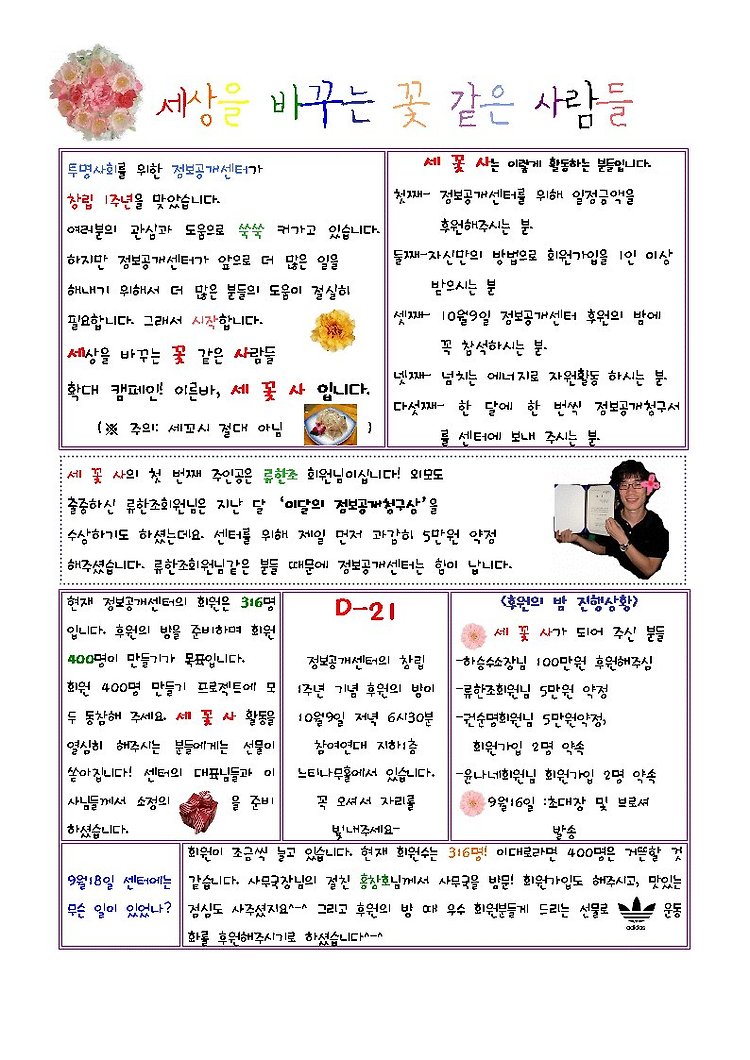 세상을 바꾸는 꽃 같은 사람들
투명사회를 위한 정보공개센터가
창립 1주년을 맞았습니다.
여러분의 관심과 도움으로 쑥쑥 커가고 있습니다.
하지만 정보공개센터가 앞으로 더 많은 일을
해내기 위해서 더 많은 분들의 도움이 절실히
필요합니다. 그래서 시작합니다.
세상을 바꾸는 꽃 같은 사람들
확대 캠페인! 이른바, 세 꽃 사 입니다.
(※ 주의: 세꼬시 절대 아님 )
세 꽃 사는 이렇게 활동하는 분들입니다.
첫째- 정보공개센터를 위해 일정금액을
후원해주시는 분.
둘째-자신만의 방법으로 회원가입을 1인 이상
받으시는 분
셋째- 10월9일 정보공개센터 후원의 밤에
꼭 참석하시는 분.
넷째- 넘치는 에너지로 자원활동 하시는 분.
다섯째- 한 달에 한 번씩 정보공개청구서
를 센터에 보내 주시는 분.
세 꽃 사의 첫 번째 주인공은 류한조 회원님이십니다! 외모도
출중하신 류한조회원님은 지난 달 ‘이달의 정보공개청구상’을
수상하기도 하셨는데요. 센터를 위해 제일 먼저 과감히 5만원 약정
해주셨습니다. 류한조회원님같은 분들 때문에 정보공개센터는 힘이 납니다.
현재 정보공개센터의 회원은 316명
입니다. 후원의 밤을 준비하며 회원
400명이 만들기가 목표입니다.
회원 400명 만들기 프로젝트에 모
두 동참해 주세요. 세 꽃 사 활동을
열심히 해주시는 분들에게는 선물이
쏟아집니다! 센터의 대표님들과 이
사님들께서 소정의 을 준비
하셨습니다.
D-21
정보공개센터의 창립
1주년 기념 후원의 밤이
10월9일 저녁 6시30분
참여연대 지하1층
느티나무홀에서 있습니다.
꼭 오셔서 자리를
빛내주세요~
<후원의 밤 진행상황>
세 꽃 사가 되어 주신 분들
-하승수소장님 100만원 후원해주심
-류한조회원님 5만원 약정
-권순명회원님 5만원약정,
회원가입 2명 약속
-윤나네회원님 회원가입 2명 약속
9월16일 :초대장 및 브로셔
발송
9월18일 센터에는
무슨 일이 있었나?
회원이 조금씩 늘고 있습니다. 현재 회원수는 316명! 이대로라면 400명은 거뜬할 것
같습니다. 사무국장님의 절친 홍창호님께서 사무국을 방문! 회원가입도 해주시고, 맛있는
점심도 사주셨지요^-^ 그리고 후원의 밤 때 우수 회원분들게 드리는 선물로 운동
adidas
화를 후원해주시기로 하셨습니다^-^